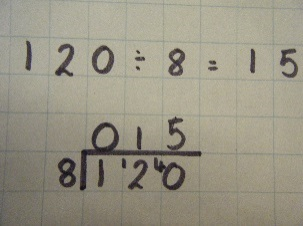 120 ÷ 8 = 15
015
8 1 ¹2 ⁴0